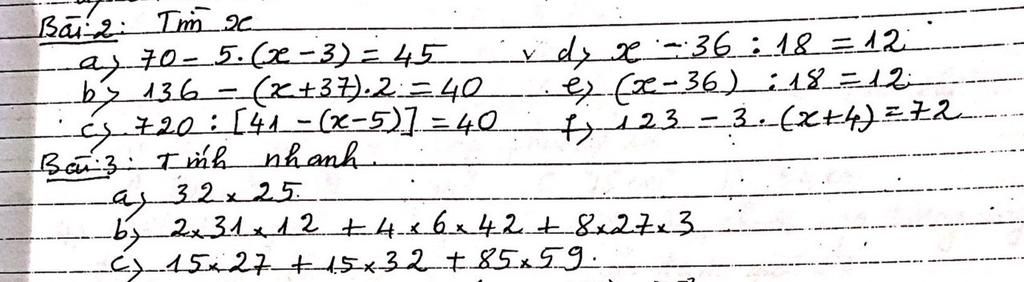 Bài 2: Tìm x
a) 70 - 5.(x-3) = 45 v d) x - 36 : 18 = 12
b) 136 - (x+37).2 = 40 e) (x-36) : 18 = 12
c) 720 : [41 - (x-5)] = 40 f) 123 - 3.(x+4) = 72
Bài 3: Tính nhanh.
a) 32 x 25
b) 2x31x12 + 4x6x42 + 8x27x3
c) 15x27 + 15x32 + 85x59.